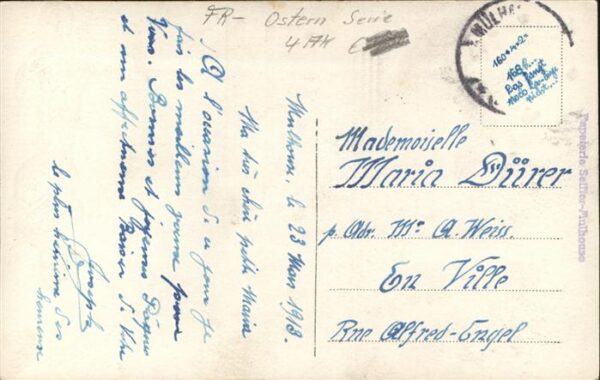 FR- Ostern Serie
4 AK
MÜLH
160*4*2=
168.-
Das langt
nicht...
Mulhouse, le 23 Mars 1913.
Ma très chère petite Maria
A l'occasion de ce jour je
fais les meilleurs voeux pour
Vous. Bonnes et joyeuses Pâques
et mon affectueux Baiser de Votre
le plus sincère des
Mademoiselle
Maria Dürer
p. Adr. Mr. A. Weiss
En Ville
Rue Alfred-Engel
Papeterie Seiffer-Mulhouse